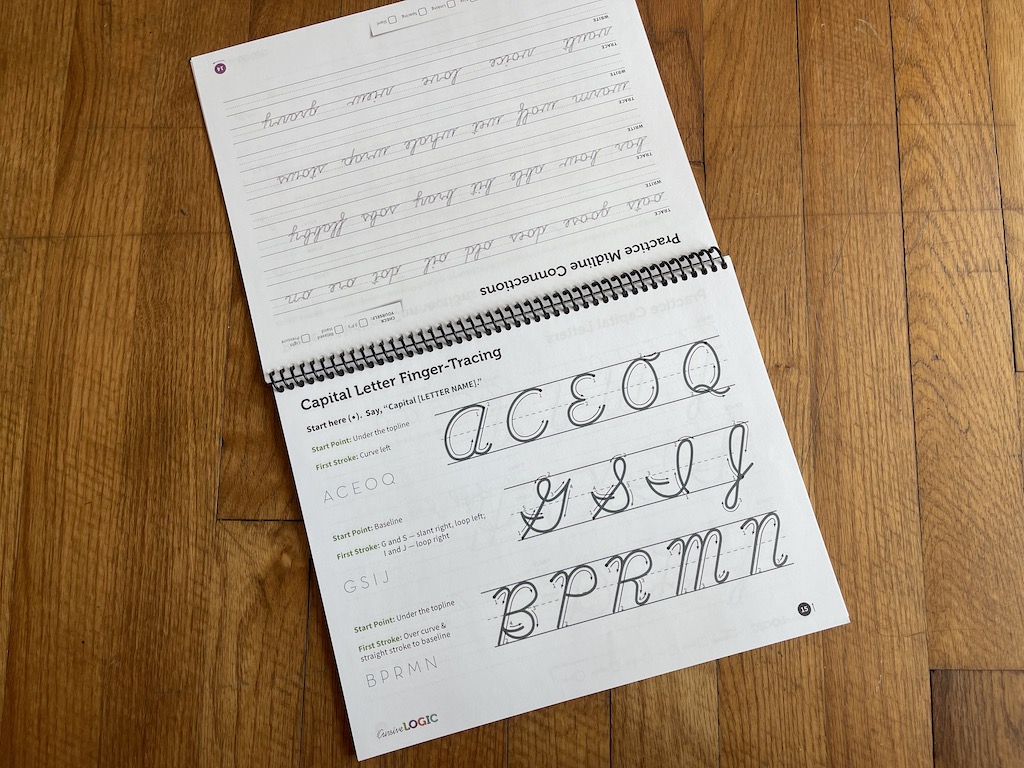 Practice Midline Connections
CHECK YOURSELF:
3 P's
Relaxed Hand
Light Pressure
TRACE
oats goose does old oil dot ore on
WRITE
TRACE
bar bow able bit bray sobs flabby
WRITE
TRACE
warm wolf wet whale wrap stows
WRITE
TRACE
vault voice love view gravy
WRITE
Linking Spacing Slant
14
Capital Letter Finger-Tracing
Start here (•). Say, "Capital [LETTER NAME]."
Start Point: Under the topline
First Stroke: Curve left
A C E O Q
A C E O Q
Start Point: Baseline
First Stroke: G and S — slant right, loop left;
I and J — loop right
G S I J
G S I J
Start Point: Under the topline
First Stroke: Over curve &
straight stroke to baseline
B P R M N
B P R M N
CursiveLOGIC
15